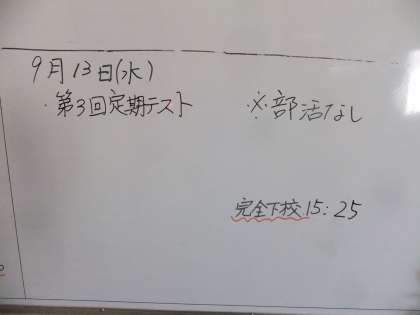 9月13日(水)
・第3回定期テスト
※部活なし
完全下校15:25